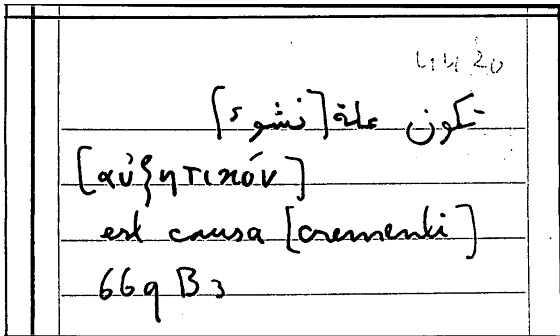 4420
تكون علة [نشوء]
[αὐξητικόν]
est causa [crementi]
669 B 3